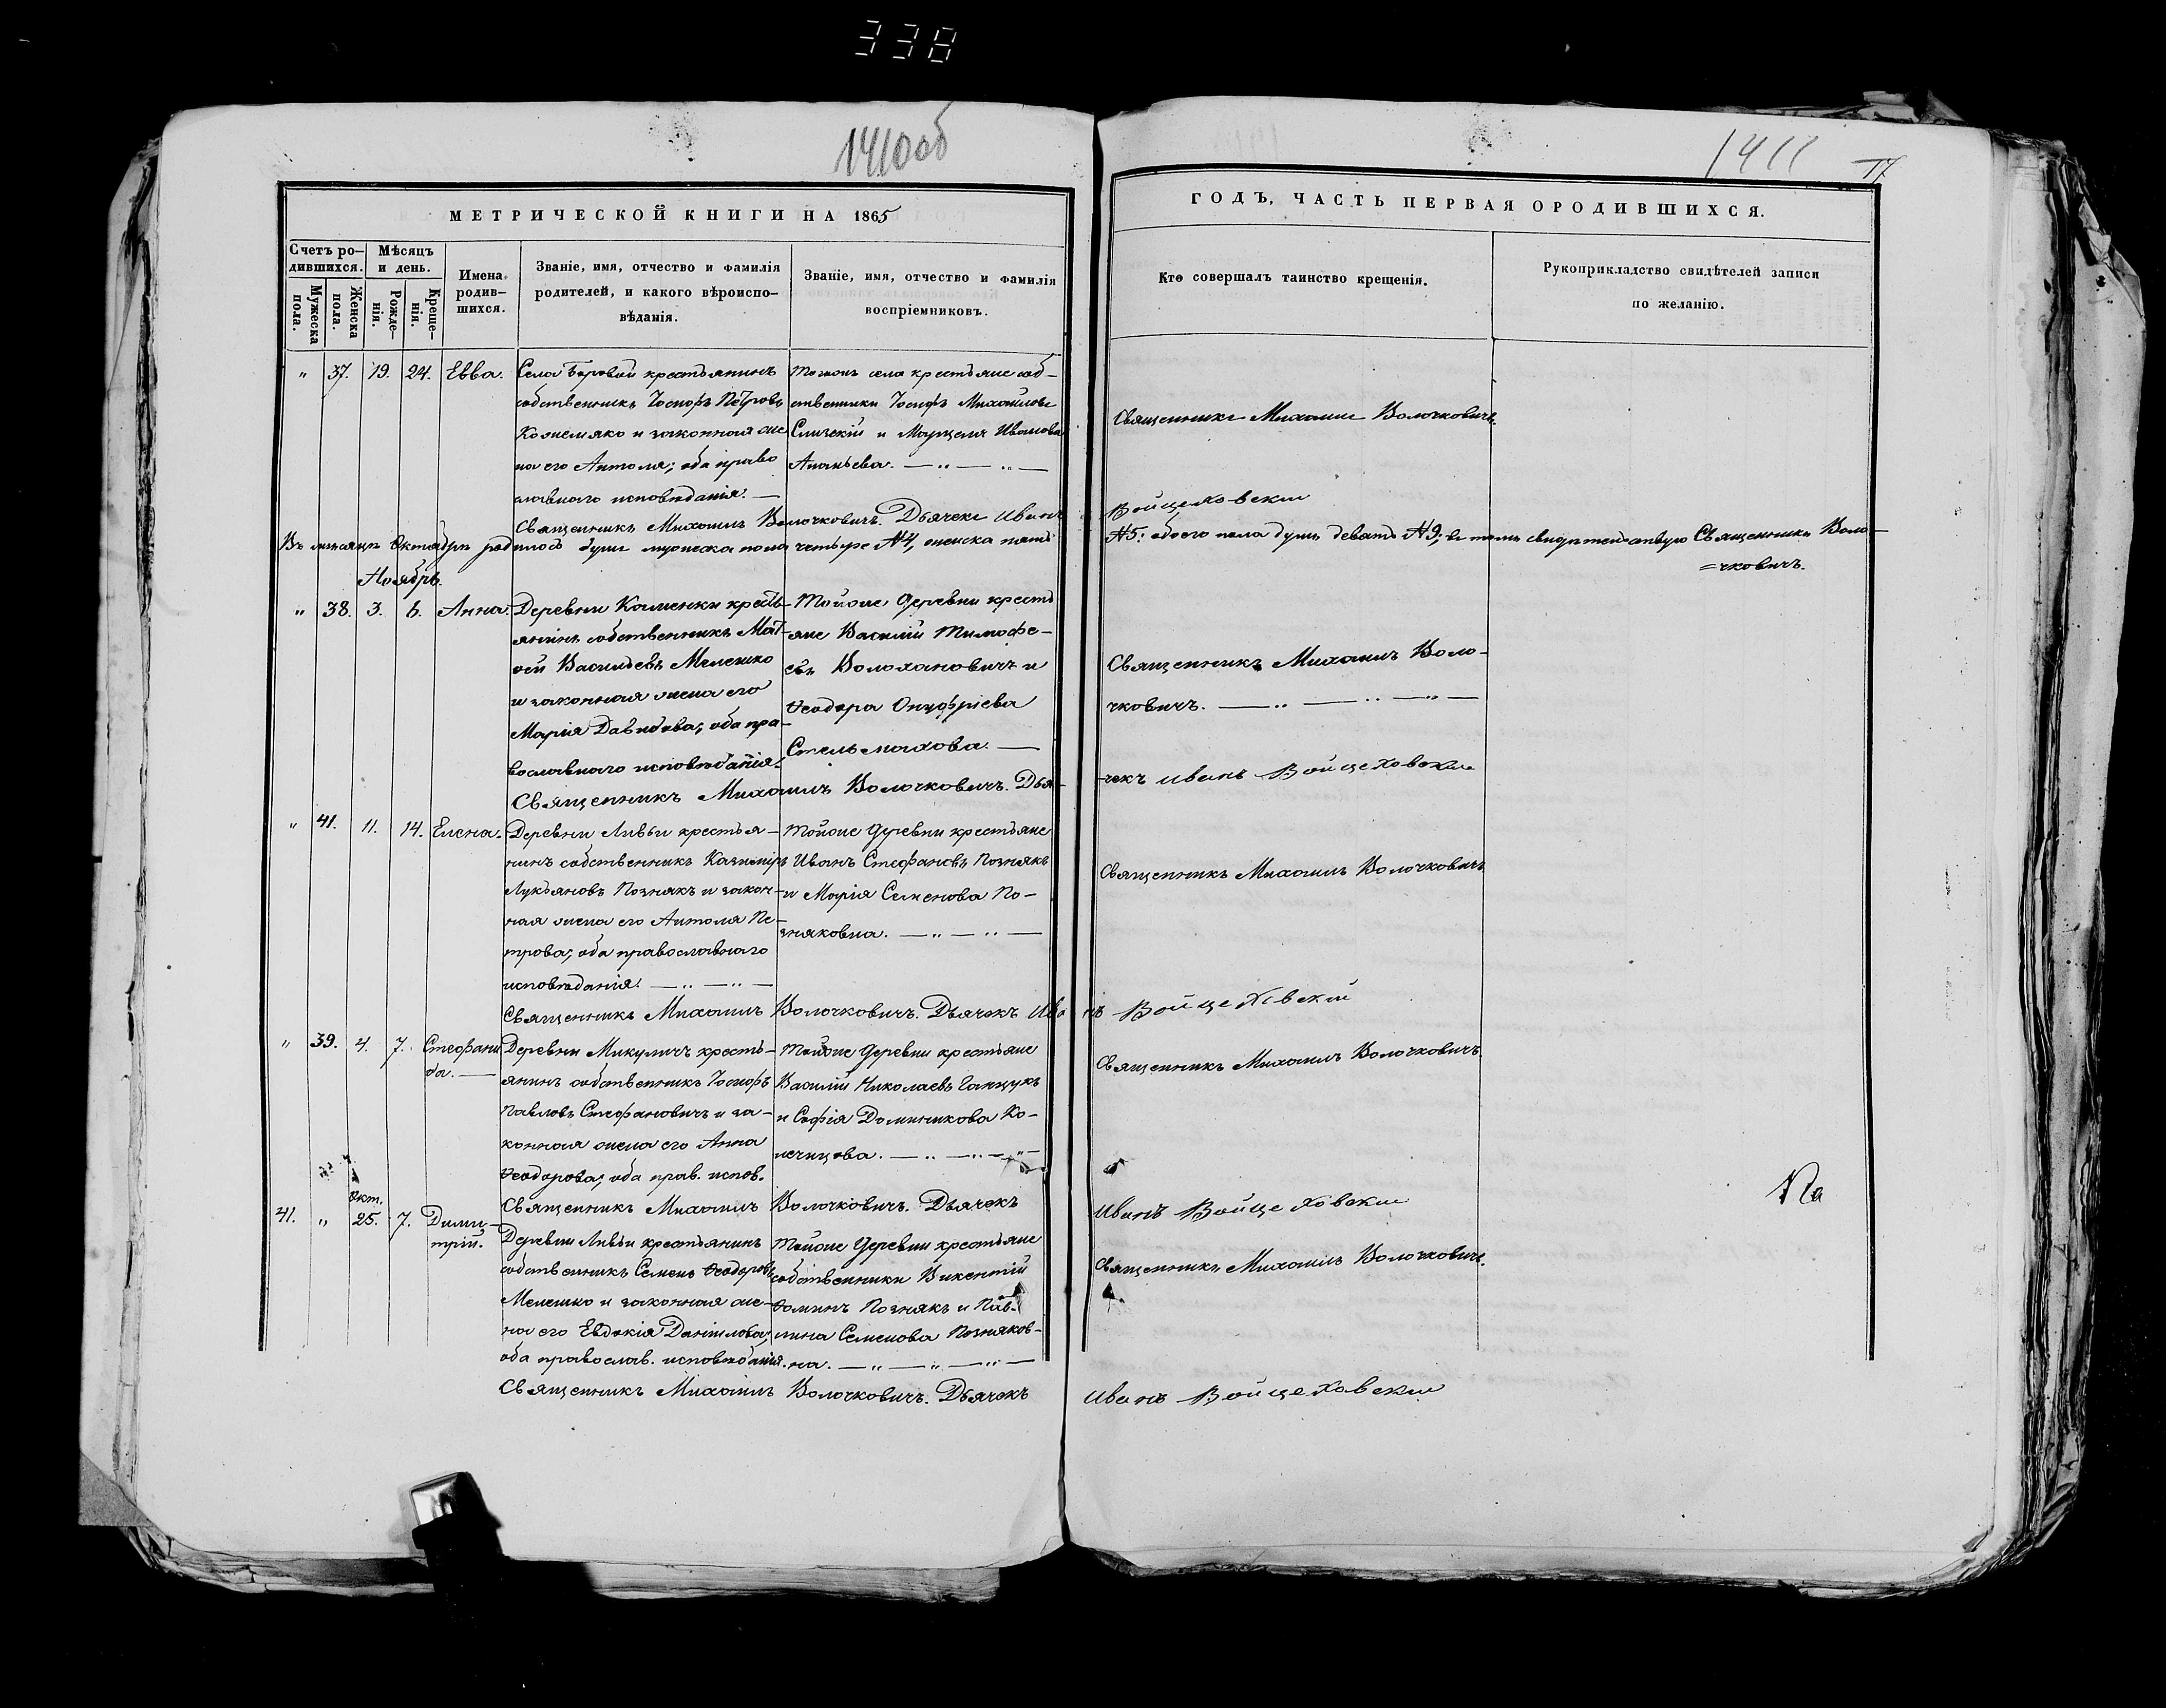 338
1410об
1411
17
МЕТРИЧЕСКОЙ КНИГИ НА 1865
ГОДЪ, ЧАСТЬ ПЕРВАЯ О РОДИВШИХСЯ.
Счетъ ро-
дившихся.
Мужеска
пола.
Женска
пола.
Мѣсяцъ
и день.
Рожде-
нія.
Креще-
нія.
Имена
родив-
шихся.
Званіе, имя, отчество и фамилія
родителей, и какого вѣроиспо-
вѣданія.
Званіе, имя, отчество и фамилія
воспріемниковъ.
Кто совершалъ таинство крещенія.
Рукоприкладство свидѣтелей записи
по желанію.
" 37. 19. 24. Евва.
Села Боровой крестьянинъ
собственникъ Іосифъ Петровъ
Кожемяко и законная же
на его Антоля; оба право
славнаго исповѣданія. —
Тогожъ села крестьяне соб-
ственники Іосифъ Михайловъ
и Марцеля Иванова
Ананьева. — " — " —
Священникъ Михаилъ Волочковичъ.
Священникъ Михаилъ Волочковичъ. Дьячекъ Иванъ Войцеховскій
Въ мѣсяцѣ Октябрѣ родилось душъ мужеска пола четыре №4, женска пять №5: обоего пола душъ девять №9; въ томъ свидѣтельствую Священникъ Воло-
=чковичъ.
Ноябрь.
" 38. 3. 6. Анна.
Деревни Каменки кресть-
янинъ собственникъ Мат-
ѳей Васильевъ Мелешко
и законная жена его
Марія Давидова; оба пра-
вославнаго исповѣданія.
Тойже деревни кресть
яне Василій Тимофе-
евъ Волоханович и
Ѳеодора Онуфріева
Стельмахова. —
Священникъ Михаилъ Воло-
чковичъ. — " — " — " —
Священникъ Михаилъ Волочковичъ. Дья-
-чекъ Иванъ Войцеховскій
" 41. 11. 14. Елена.
Деревни Ливьи крестья-
нинъ собственникъ Казимиръ
Лукьяновъ Познякъ и закон-
ная жена его Антоля Пе-
трова; оба православнаго
исповѣданія. — " — " —
Тойже деревни крестьяне
Иванъ Стефановъ Познякъ
и Марія Семенова По-
зняковна. — " — " —
Священникъ Михаилъ Волочковичъ
Священникъ Михаилъ Волочковичъ. Дьячекъ Иванъ Войцеховскій
" 39. 4. 7. Стефани
да. —
Деревни Микуличъ кресть-
янинъ собственникъ Іосифъ
Павловъ Стефановичъ и за-
конная жена его Анна
Ѳеодорова; оба прав. испов.
Тойже деревни крестьяне
Василій Николаевъ Ганцукъ
и Софія Доминикова Ко-
Священникъ Михаилъ Волочковичъ
Священникъ Михаилъ Волочковичъ. Дьячекъ Иванъ Войцеховскій
Окт.
41. " 25. 7. Дими-
трій.
Деревни Ливьи крестьянинъ
собственникъ Семенъ Ѳеодоровъ
Мелешко и законная же-
на его Евдокія Даніилова;
оба православ. исповѣданія.
Тойже деревни крестьяне
собственники Викентій
Ѳоминъ Познякъ и Пав-
лина Семенова Позняков-
на. — " — " — " —
Священникъ Михаилъ Волочковичъ.
Священникъ Михаилъ Волочковичъ. Дьячекъ Иванъ Войцеховскій